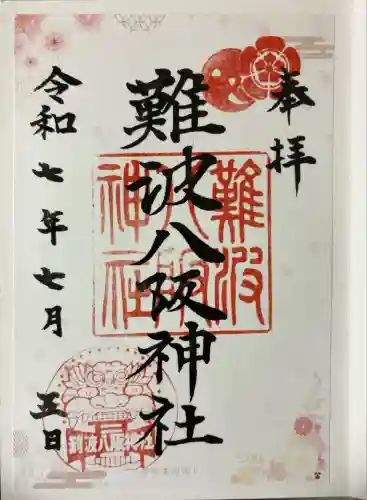 奉拝
難波八阪神社
令和七年七月五日
難波
八阪
神社
難波八阪神社